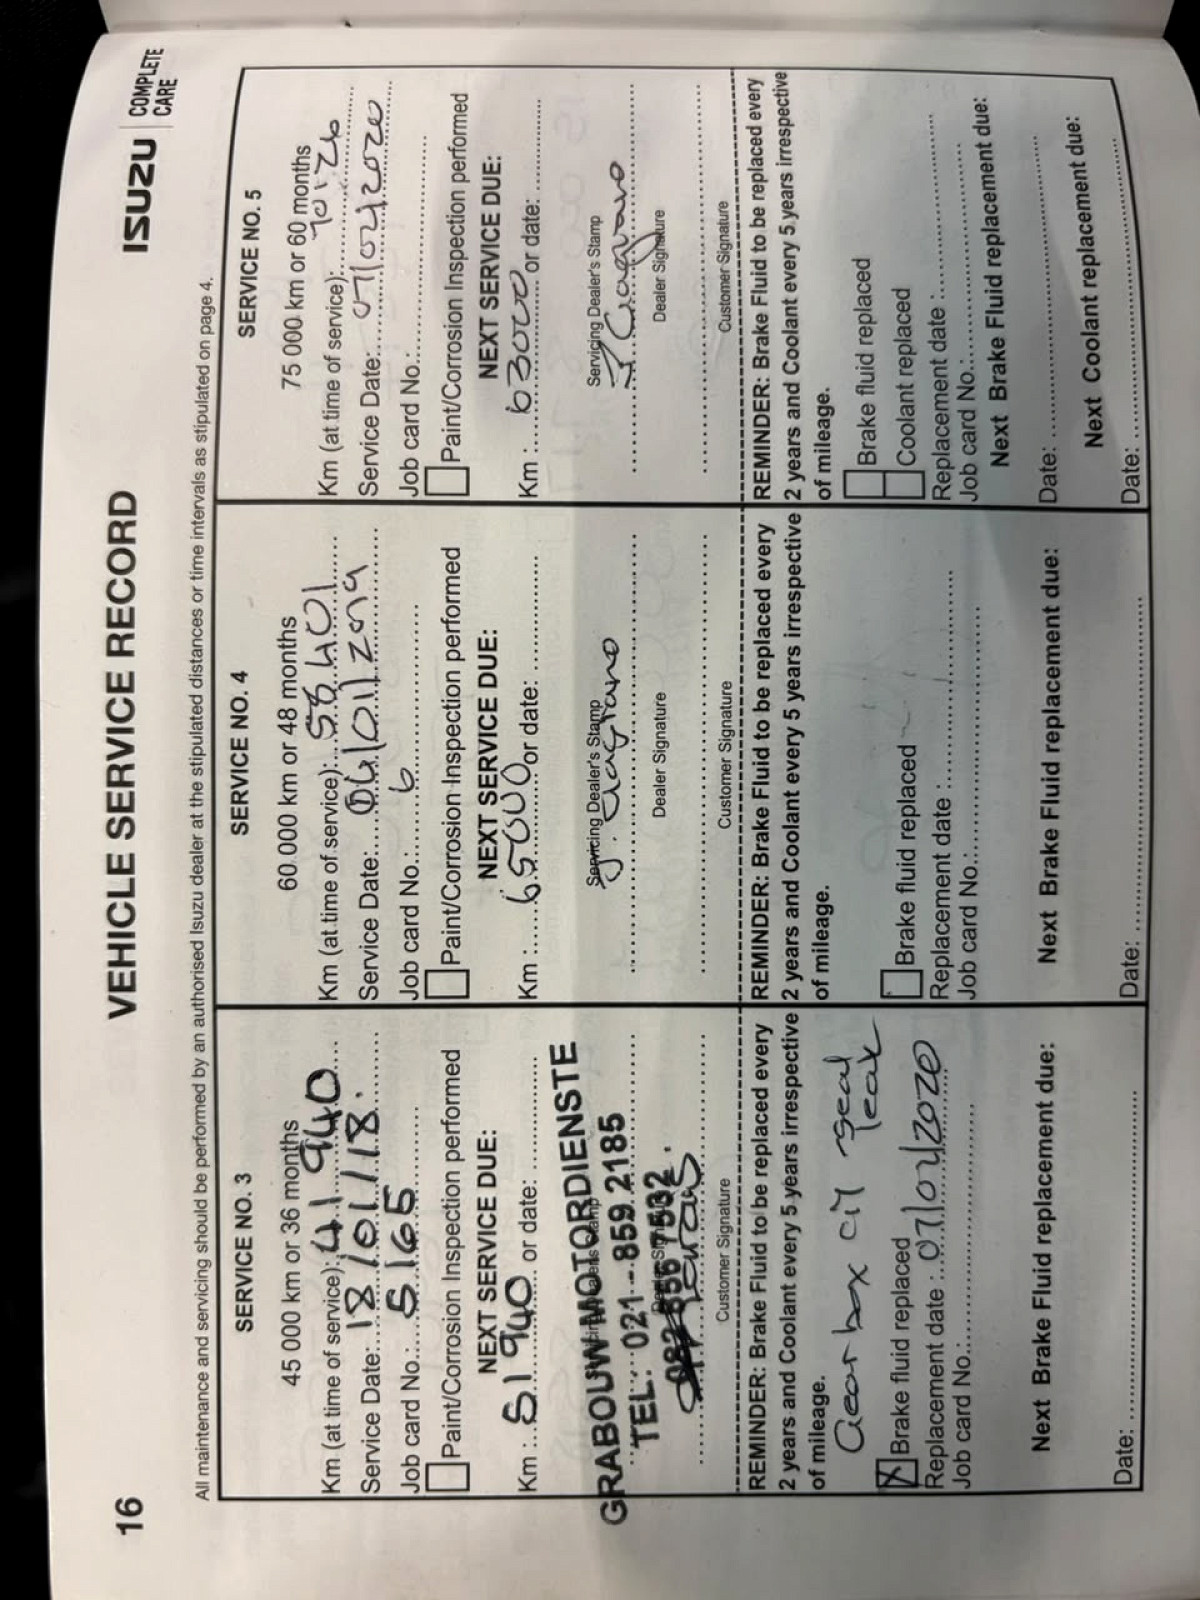 16
VEHICLE SERVICE RECORD
ISUZU
COMPLETE
CARE
All maintenance and servicing should be performed by an authorised Isuzu dealer at the stipulated distances or time intervals as stipulated on page 4.
SERVICE NO. 3
45 000 km or 36 months
Km (at time of service): 41 940
Service Date: 18/01/18.
Job card No.: 5165
Paint/Corrosion Inspection performed
NEXT SERVICE DUE:
Km : 51 940 or date:
GRABOUW MOTORDIENSTE
TEL: 021 - 859 2185
Customer Signature
REMINDER: Brake Fluid to be replaced every
2 years and Coolant every 5 years irrespective
of mileage.
Gearbox oil seal
leak
Brake fluid replaced
Replacement date :
Job card No.:
Next Brake Fluid replacement due:
Date:
SERVICE NO. 4
60 000 km or 48 months
Km (at time of service): 58 401
Service Date:
Job card No.: 6
Paint/Corrosion Inspection performed
NEXT SERVICE DUE:
Km : 65000 or date:
Servicing Dealer's Stamp
Dealer Signature
Customer Signature
REMINDER: Brake Fluid to be replaced every
2 years and Coolant every 5 years irrespective
of mileage.
Brake fluid replaced
Replacement date :
Job card No.:
Next Brake Fluid replacement due:
Date:
SERVICE NO. 5
75 000 km or 60 months
Km (at time of service): 70126
Service Date: 07/04/2020
Job card No.:
Paint/Corrosion Inspection performed
NEXT SERVICE DUE:
Km : 83000 or date:
Servicing Dealer's Stamp
Dealer Signature
Customer Signature
REMINDER: Brake Fluid to be replaced every
2 years and Coolant every 5 years irrespective
of mileage.
Brake fluid replaced
Coolant replaced
Replacement date :
Job card No.:
Next Brake Fluid replacement due:
Date:
Next Coolant replacement due:
Date: